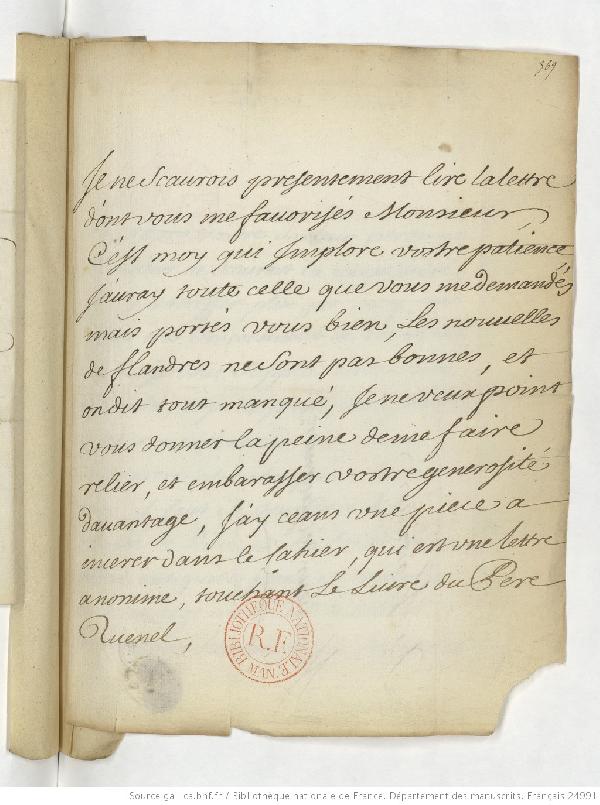 369
Je ne scaurois presentement lire la lettre
dont vous me favorisés Monsieur,
C'est moy qui Implore vostre patience
J'auray toute celle que vous me demandés
mais portés vous bien, Les nouvelles
de flandres ne sont pas bonnes, et
on dit tout manqué, Je ne veux point
vous donner la peine de me faire
relier, et embarasser vostre generosité
davantage, J'ay ceans vne piece a
incerer dans le Cahier, qui est vne lettre
anonime, touchant Le Livre du Pere
Quenel,
BIBLIOTHÈQUE NATIONALE MAN.
R.F.
Source gallica.bnf.fr / Bibliothèque nationale de France. Département des manuscrits. Français 24991